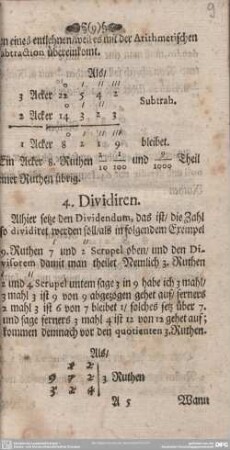 9
§(9)§
man eines entlehnen/weil es mit der Arithmetischen
Subtraction übereinkomt.
Als/
0 / // ///
3 Acker 22 5 4 2
Subtrah.
2 Acker 14 3 2 3
1 Acker 8 2 1 9 bleibet.
Ein Acker 8. Ruthen 2/10 1/100 und 9/1000 Theil
einer Ruthen übrig.
4. Dividiren.
Alhier setze den Dividendum, das ist/die Zahl
so dividiret werden soll/als in folgendem Exempel
0 / //
9. Ruthen 7 und 2 Scrupel oben/ und den Di-
visorem damit man theilet/Nemlich 3. Ruthen
/ //
2 und 4 Scrupel untem sage 3 in 9 habe ich 3 mahl/
3 mahl 3 ist 9 von 9 abgezogen gehet auf/ ferners
2 mahl 3 ist 6 von 7 bleibet 1/ solches setz über 7.
und sage ferners 3 mahl 4 ist 12 von 12 gehet auf;
kommen demnach vor den quotienten 3. Ruthen.
Als/
9 7 2 3 Ruthen
3 2 4
A 5 Wann